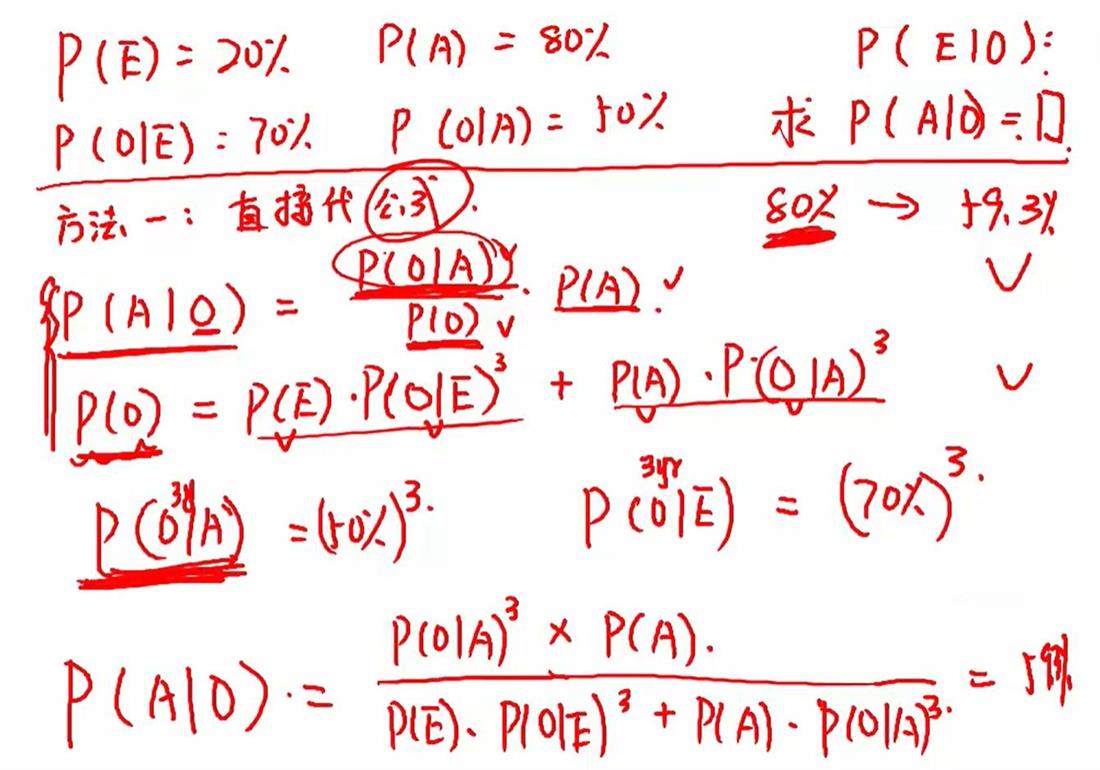 P(E) = 20% P(A) = 80% P(E|O):
P(O|E) = 70% P(O|A) = 50% 求 P(A|O) = □.
方法一: 直接代公式. 80% → 59.3%
P(A|O) = P(O|A) / P(O) · P(A).
P(O) = P(E)·P(O|E)³ + P(A)·P(O|A)³
P(O|A) = (50%)³. 3yr P(O|E) = (70%)³.
P(A|O) = P(O|A)³ × P(A). / P(E)·P(O|E)³ + P(A)·P(O|A)³. = 59.3%